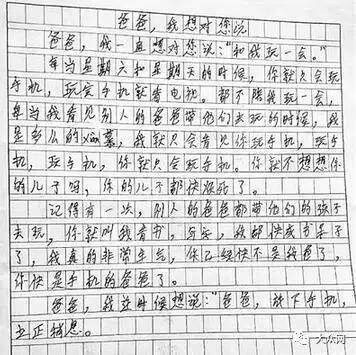 爸爸，我想对您说
爸爸，我一直想对您说："和我玩一会。"
每当星期六和星期天的时候，你就只会玩
手机，玩完手机就看电视。都不陪我玩一会，
每当我看见别人的爸爸带他们去玩的时候，我
是多么的xian慕，我就只会看见你玩手机，玩手
机，玩手机，你就只会玩手机。你就不想想你
的儿子吗，你的儿子都快疯了。
记得有一次，别人的爸爸都带他们的孩子
去玩，你就叫我看书，写字，我都快成书呆子
了，我真的非常生气，你已经快不是我爸了，
你快是手机的爸爸了。
爸爸，我这时候想说："爸爸，放下手机，
立正稍息。
大众网